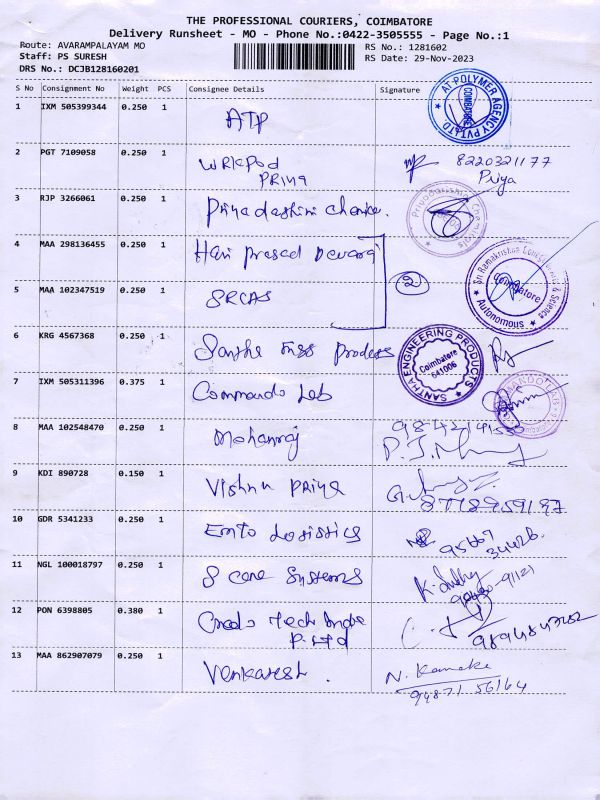 THE PROFESSIONAL COURIERS, COIMBATORE
Delivery Runsheet - MO - Phone No.:0422-3505555 - Page No.:1
Route: AVARAMPALAYAM MO
RS No.: 1281602
Staff: PS SURESH
RS Date: 29-Nov-2023
DRS No.: DCJB128160201
S No Consignment No Weight PCS Consignee Details Signature
1 IXM 505399344 0.250 1 ATP
AT POLYMER AGENCY PVT LTD COIMBATORE
2 PGT 7109058 0.250 1 WRKPOD 8220321177
PRIYA Priya
3 RJP 3266061 0.250 1 Priyadashini
Priyadarshini Chemicals
4 MAA 298136455 0.250 1 Hari Prasad Devaraj
2
5 MAA 102347519 0.250 1 SRCAS
Sri Ramakrishna College of & Science Coimbatore Autonomous
6 KRG 4567368 0.250 1 Santha Engg
SANTHA ENGINEERING PRODUCTS Coimbatore 641006
7 IXM 505311396 0.375 1 Commando Lab
8 MAA 102548470 0.250 1 Mohanraj
9 KDI 890728 0.150 1 Vishnu PRIYA
10 GDR 5341233 0.250 1 Logistics
11 NGL 100018797 0.250 1 S care Systems
12 PON 6398805 0.380 1 Tech India
P. Ltd
13 MAA 862907079 0.250 1 Venkatesh. N. Kamake
94871 56164